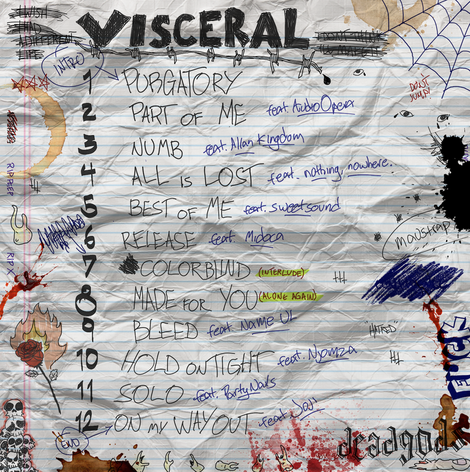 VISCERAL
INTRO
1 PURGATORY
2 PART OF ME feat. AudioOpera
3 NUMB feat. Allan Kingdom
4 ALL is LOST feat. nothing, nowhere.
5 BEST OF ME feat. sweetsound
6 RELEASE feat. Midoca
7 COLORBLIND (INTERLUDE)
8 MADE FOR YOU (ALONE AGAIN)
9 BLEED feat. Name UL
10 HOLD ON TIGHT feat. Nyomza
11 SOLO feat. PartyNails
12 ON MY WAY OUT feat. Joji
END
mousetrap
HATRED
RIP X
deadgods